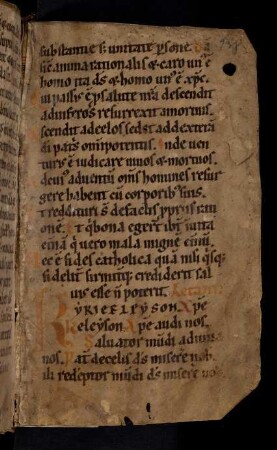 substantie sꝫ unitate psone. Na
ne anima rationalis ⁊ caro un̄ e
homo ita ds ⁊ homo un̄ ē xpc.
ui passꝰ ē p salute nr̄a descendit
ad inferos resurrexit a mortuis.
scendit ad celos sedet ad dexterā
di patris omnipotentis. Inde ven
turꝰ ē iudicare vivos ⁊ mortuos.
d cuiꝰ adventū om̄s homines resur
gere habent cū corporibꝰ suis.
⁊ reddituri sꝭ de factis ppriis ratio
onē. Et q̇ bona egerunt ibunt ī vitā
et̄nā q̇ vero mala ī ignē et̄nū.
ec ē fides catholica quā nisi q̇sq̇
fideliter firmiterq; crediderit sal
uus esse n̄ poterit.
Kyrieleyson Xpe
keleyson Xpe audi nos.
Salvator mūdi adiuva
nos. Pat̄ de celis ds miserere nob
ili redeptor mūdi ds miserere nob